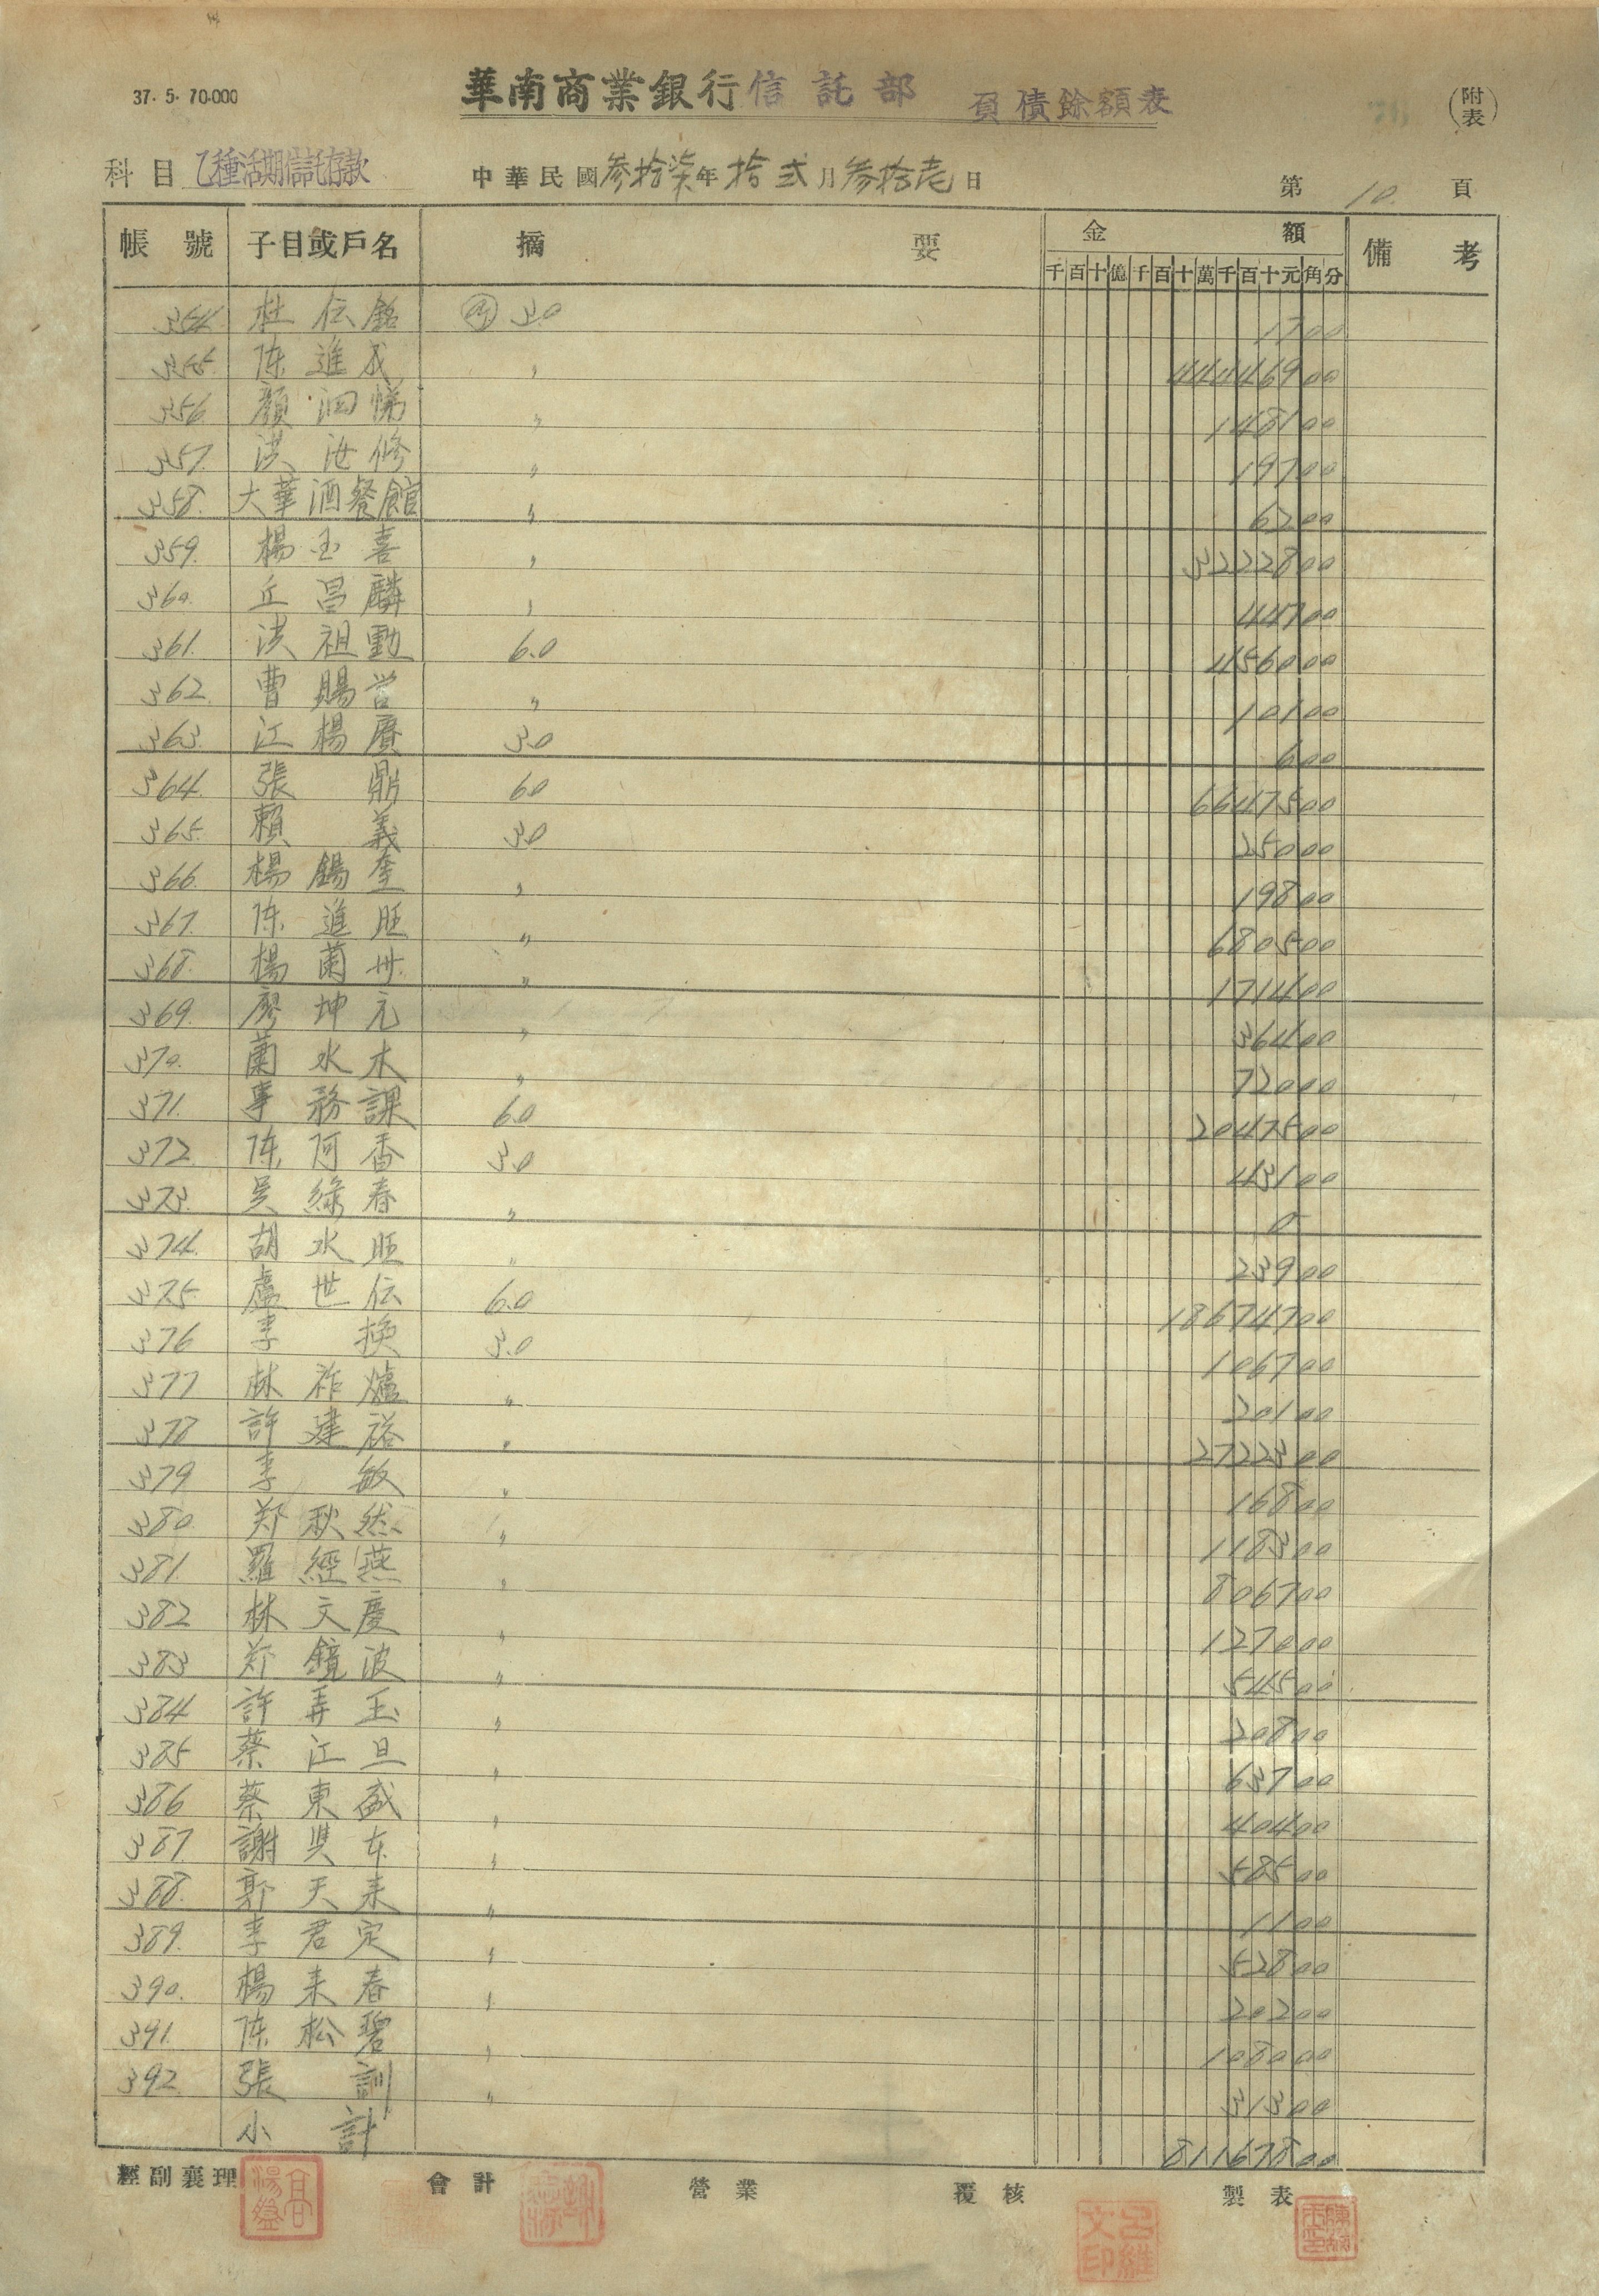 37. 5. 70.000
華南商業銀行信託部 負債餘額表 (附表)
科目 乙種活期信託存款 中華民國參拾柒年拾弍月參拾壱日 第10.頁
帳號 子目或戶名 摘要 金額 備考
千百十億千百十萬千百十元角分
354. 杜伝銘 3.0 1700
355. 陈進成 〃 44446900
356. 顏泗悌 〃 148100
357. 洪汝修 〃 19700
358. 大華酒餐館 〃 6200
359. 楊玉喜 〃 3222800
360. 丘昌麟 〃 44700
361. 洪祖勳 6.0 456000
362. 曹賜営 〃 10100
363. 江楊賡 3.0 600
364. 張鼎 6.0 6647500
365. 賴義 3.0 25000
366. 楊錫奎 〃 19800
367. 陈進旺 〃 680500
368. 楊蘭州 〃 171400
369. 廖坤元 〃 36400
370. 蘭水木 〃 72000
371. 事務課 6.0 2047500
372. 陈阿香 3.0 43100
373. 吴綠春 〃 0
374. 胡水旺 〃 23900
375. 盧世伝 6.0 18674700
376 李換 3.0 106700
377 林祚爐 〃 20100
378 許建裕 〃 2722300
379. 李敏 〃 16800
380. 郑秋然 〃 118300
381. 羅經燕 〃 806700
382 林文慶 〃 127000
383 郑鏡波 〃 54500
384 許弄玉 〃 20800
385 蔡江旦 〃 63700
386 蔡東盛 〃 40400
387. 謝*本 〃 58500
388. 郭天来 〃 1100
389. 李君定 〃 52800
390. 楊来春 〃 20200
391. 陈松碧 〃 108000
392. 張訓 〃 31300
小計 81167800
經副襄理 會計 營業 覆核 製表
呂維文印